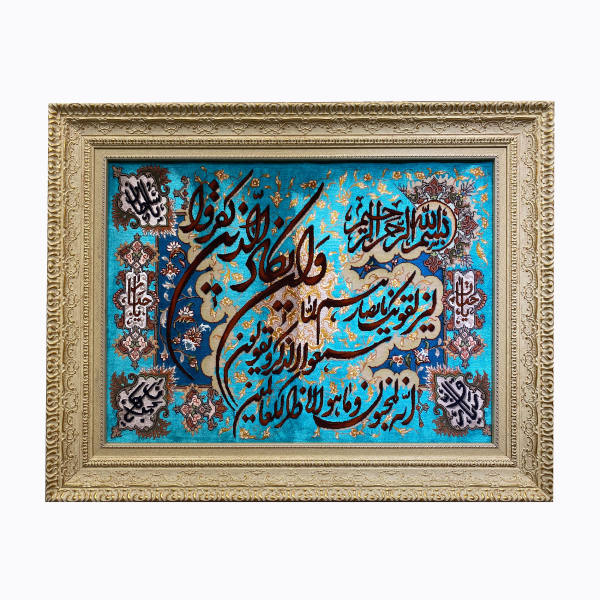 بسم الله الرحمن الرحیم
وان یکاد الذین کفروا
لیزلقونک بابصارهم لما
سمعوا الذکر و یقولون
انه لمجنون وما هو الا ذکر للعالمین
یا حنان